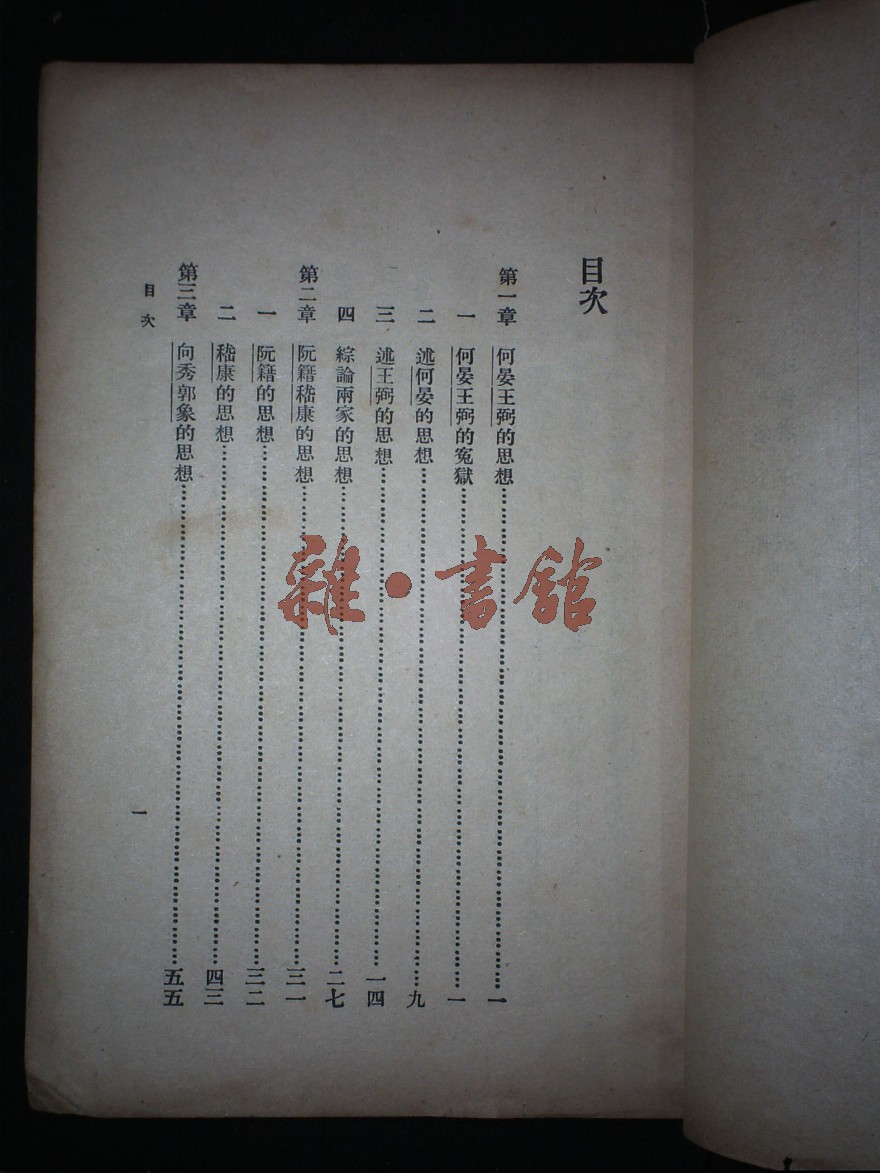 目次
第一章 何晏王弼的思想……一
一 何晏王弼的冤獄……一
二 述何晏的思想……九
三 述王弼的思想……一四
四 綜論兩家的思想……二七
第二章 阮籍嵇康的思想……三一
一 阮籍的思想……三二
二 嵇康的思想……四三
第三章 向秀郭象的思想……五五
目次
一
雜·書館